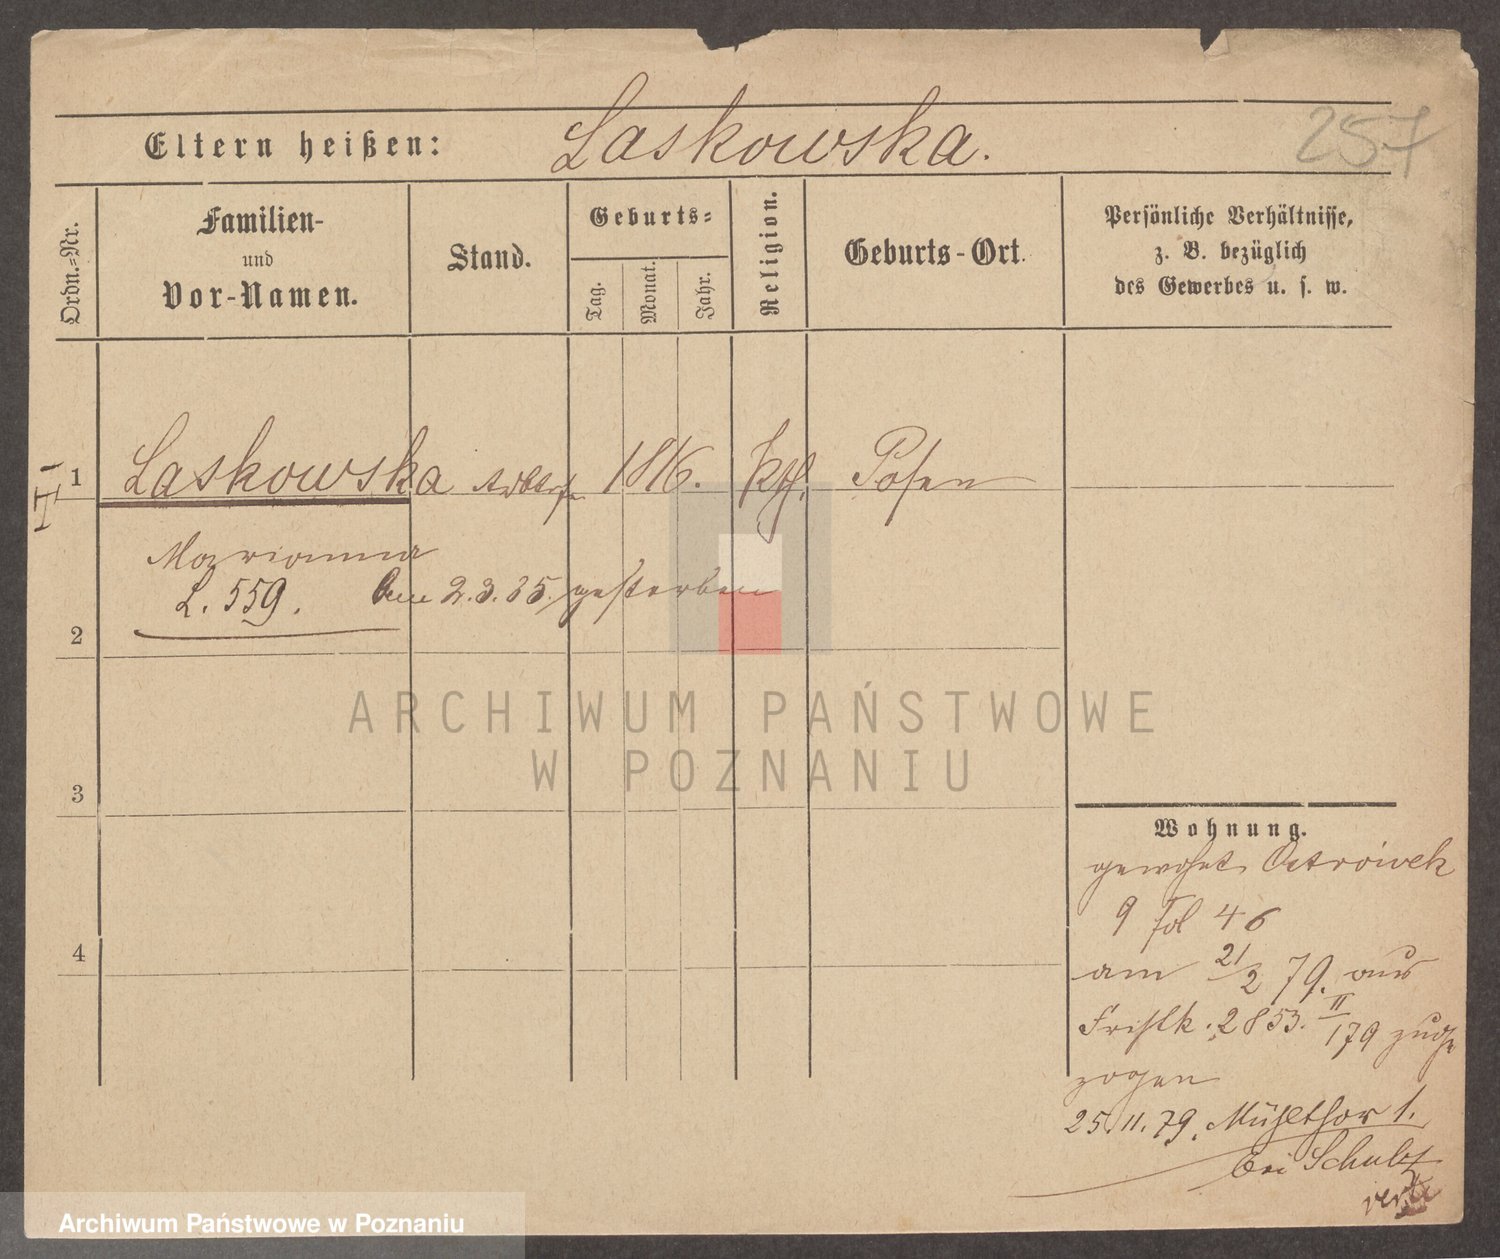 257
Eltern heißen: Laskowska.
Ordn.=Nr.
Familien-
und
Vor-Namen.
Stand.
Geburts=
Tag.
Monat.
Jahr.
Religion.
Geburts-Ort.
Persönliche Verhältnisse,
z. B. bezüglich
des Gewerbes u. s. w.
1 Laskowska 1816. kth. Posen
Marianna
L. 559. Am 2.3.85. gestorben
2
3
4
ARCHIWUM PAŃSTWOWE
W POZNANIU
Wohnung.
Ostrówek
9 fol 46
am 21/2 79. aus
2853. II/179 zuge
zogen
25.11.79. Mühlthor 1.
bei Schulz
verte
Archiwum Państwowe w Poznaniu